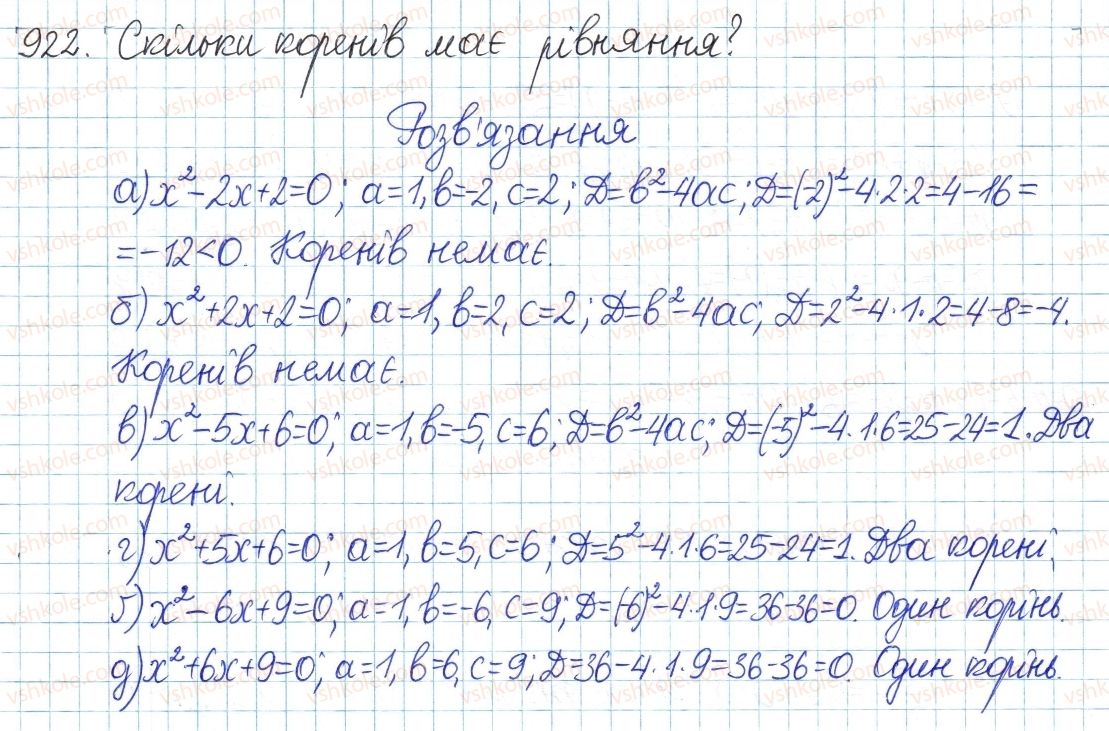 922. Скільки коренів має рівняння?
Розв'язання
а) x²-2x+2=0; a=1, b=-2, c=2; D=b²-4ac; D=(-2)²-4·2·2=4-16=
=-12<0. Коренів немає.
б) x²+2x+2=0; a=1, b=2, c=2; D=b²-4ac; D=2²-4·1·2=4-8=-4.
Коренів немає.
в) x²-5x+6=0; a=1, b=-5, c=6; D=b²-4ac; D=(-5)²-4·1·6=25-24=1. Два
корені.
г) x²+5x+6=0; a=1, b=5, c=6; D=5²-4·1·6=25-24=1. Два корені;
ґ) x²-6x+9=0; a=1, b=-6, c=9; D=(-6)²-4·1·9=36-36=0. Один корінь.
д) x²+6x+9=0; a=1, b=6, c=9; D=36-4·1·9=36-36=0. Один корінь.